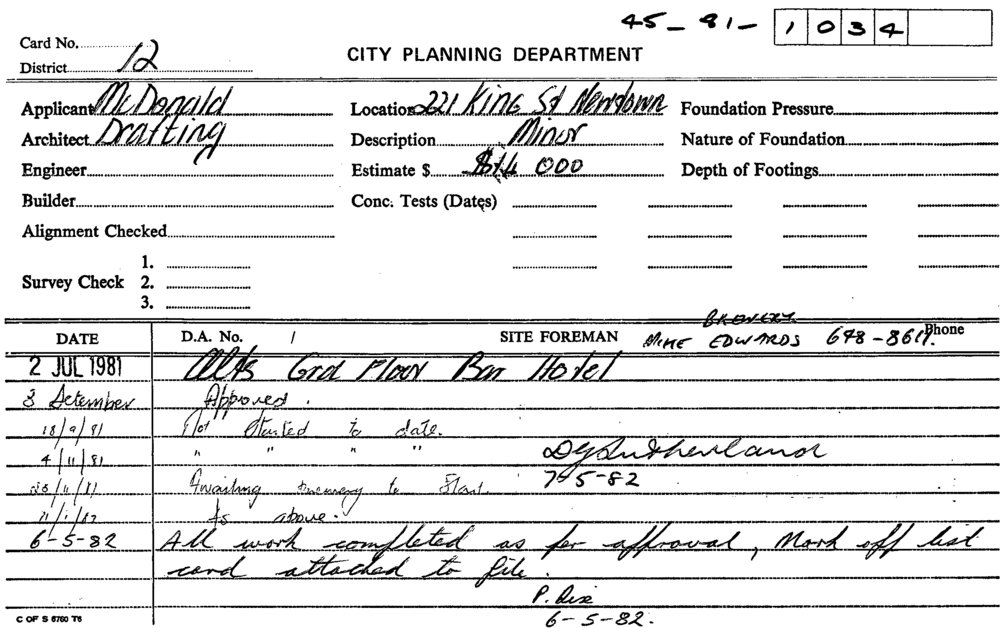 45 - 81 - 1034
Card No.
District 12
CITY PLANNING DEPARTMENT
Applicant McDonald Location 221 King St Newtown Foundation Pressure
Architect Drafting Description Minor Nature of Foundation
Engineer Estimate $ $14 000 Depth of Footings
Builder Conc. Tests (Dates)
Alignment Checked
1.
Survey Check 2.
3.
BREWERY
DATE D.A. No. / SITE FOREMAN MIKE EDWARDS 648-8611. Phone
2 JUL 1981 Alts Grd Floor Bar Hotel
3 Setember Approved.
18/9/81 Not Started to date.
4/11/81 " " " " D G Sutherland
7-5-82
Awaiting brewery to Start.
As above.
6-5-82 All work completed as per approval, Mark off list
card attached to file.
P.
6-5-82.
C OF S 6760 T6